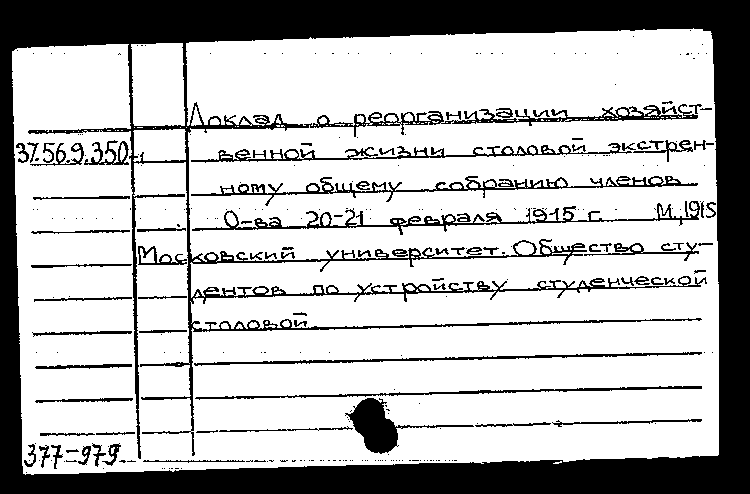 Доклад о реорганизации хозяйст-
37.56.9.350-1 венной жизни столовой экстрен-
ному общему собранию членов
О-ва 20-21 февраля 1915 г. М., 1915
Московский университет. Общество сту-
дентов по устройству студенческой
столовой.
377=979